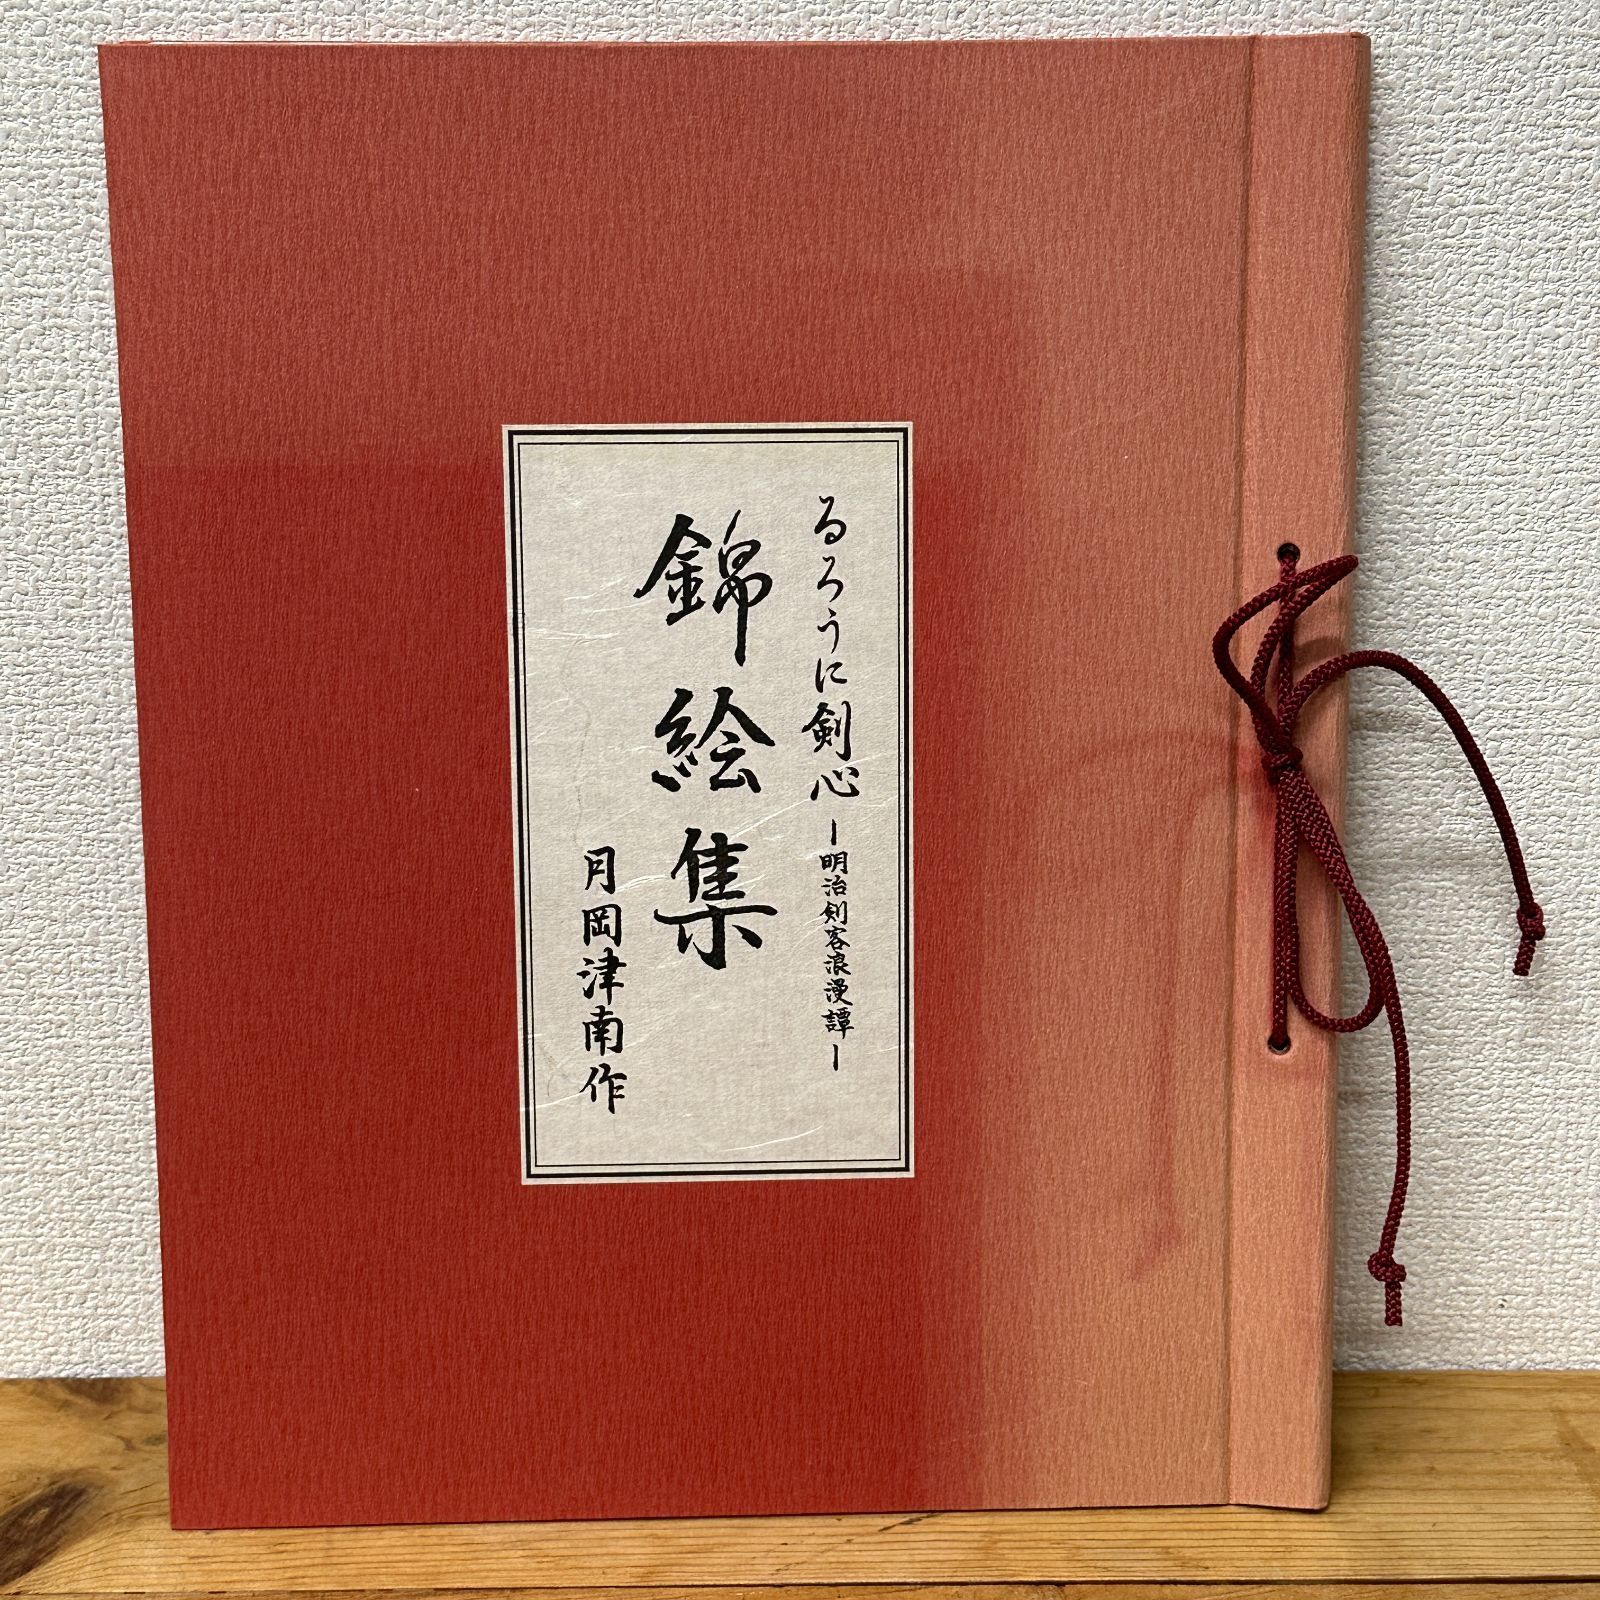 るろうに剣心ー明治剣客浪漫譚ー
錦絵集
月岡津南作